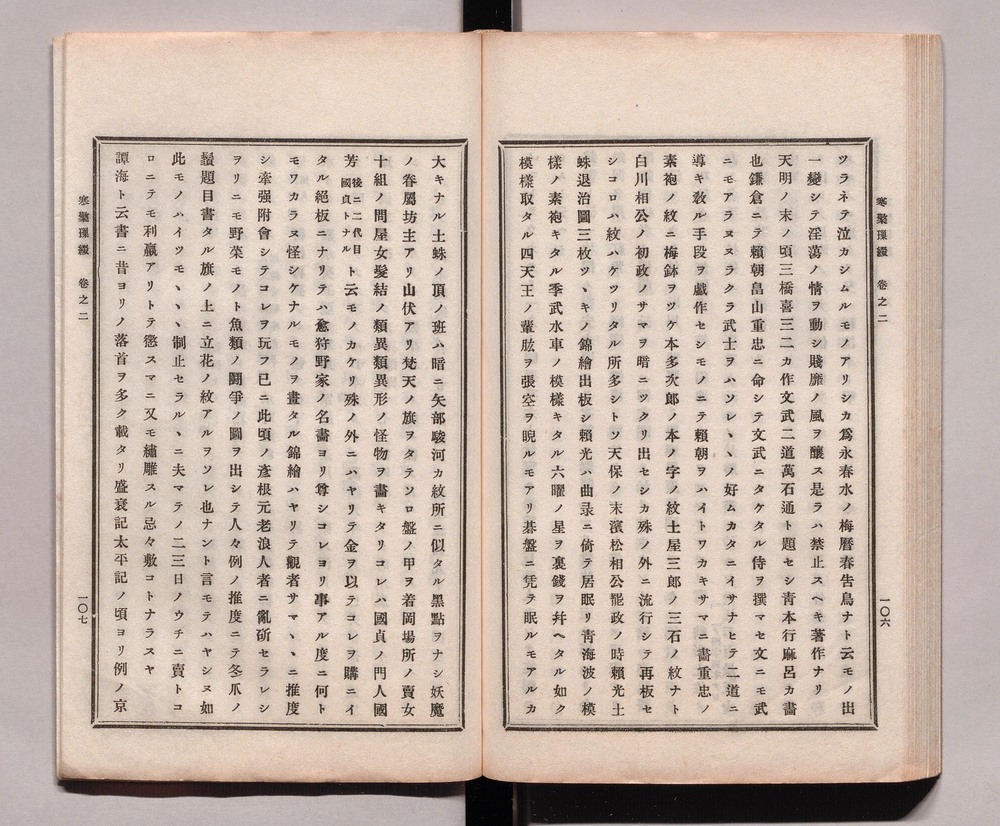 寒檠璅綴　卷之二
一〇六
ツラネテ泣カシムルモノアリシカ爲永春水ノ梅曆春告鳥ナト云モノ出
一變シテ淫蕩ノ情ヲ動シ賤靡ノ風ヲ釀ス是ラハ禁止スヘキ著作ナリ
天明ノ末ノ頃三橋喜三二カ作文武二道萬石通ト題セシ靑本行麻呂カ畵
也鎌倉ニテ賴朝畠山重忠ニ命シテ文武ニタケタル侍ヲ撰マセ文ニモ武
ニモアラヌヌラクラ武士ヲハソレヽヽノ好ムカタニイサナヒテ二道ニ
導キ敎ル手段ヲ戯作セシモノニテ賴朝ヲハイトワカキサマニ畵重忠ノ
素袍ノ紋ニ梅鉢ヲツケ本多次郎ノ本ノ字ノ紋土屋三郎ノ三石ノ紋ナト
白川相公ノ初政ノサマヲ暗ニツクリ出セシカ殊ノ外ニ流行シテ再板セ
シコロハ紋ハケツリタル所多シトソ天保ノ末濱松相公罷政ノ時賴光土
蛛退治圖三枚ツヽキノ錦繪出板シ賴光ハ曲彔ニ倚テ居眠リ靑海波ノ模
樣ノ素袍キタル季武水車ノ模樣キタル六曜ノ星ヲ裏錢ヲ幷ヘタル如ク
模樣取タル四天王ノ輩肱ヲ張空ヲ睨ルモアリ碁盤ニ凭テ眠ルモアルカ
大キナル土蛛ノ頂ノ班ハ暗ニ矢部駿河カ紋所ニ似タル黑點ヲナシ妖魔
ノ眷屬坊主アリ山伏アリ梵天ノ旗ヲタテソロ盤ノ甲ヲ着岡場所ノ賣女
十組ノ問屋女髮結ノ類異類異形ノ怪物ヲ畵キタリコレハ國貞ノ門人國
芳後ニ二代目國貞トナルト云モノカケリ殊ノ外ニハヤリテ金ヲ以テコレヲ購ニイ
タル絕板ニナリテハ愈狩野家ノ名畵ヨリ尊シコレヨリ事アル度ニ何ト
モワカラヌ怪シケナルモノヲ畫タル錦繪ハヤリテ觀者サマヽヽニ推度
シ牽强附會シテコレヲ玩フ已ニ此頃ノ彥根元老浪人者ニ亂斫セラレシ
ヲリニモ野菜モノト魚類ノ鬪爭ノ圖ヲ出シテ人々例ノ推度ニテ冬爪ノ
鬚題目書タル旗ノ上ニ立花ノ紋アルヲソレ也ナント言モテハヤシヌ如
此モノハイツモヽヽ制止セラルヽニ夫マテノ二三日ノウチニ賣トコ
ロニテモ利贏アリトテ懲スマニ又モ繡雕スル忌々敷コトナラスヤ
譚海ト云書ニ昔ヨリノ落首ヲ多ク載タリ盛衰記太平記ノ頃ヨリ例ノ京
寒檠璅綴　卷之二
一〇七